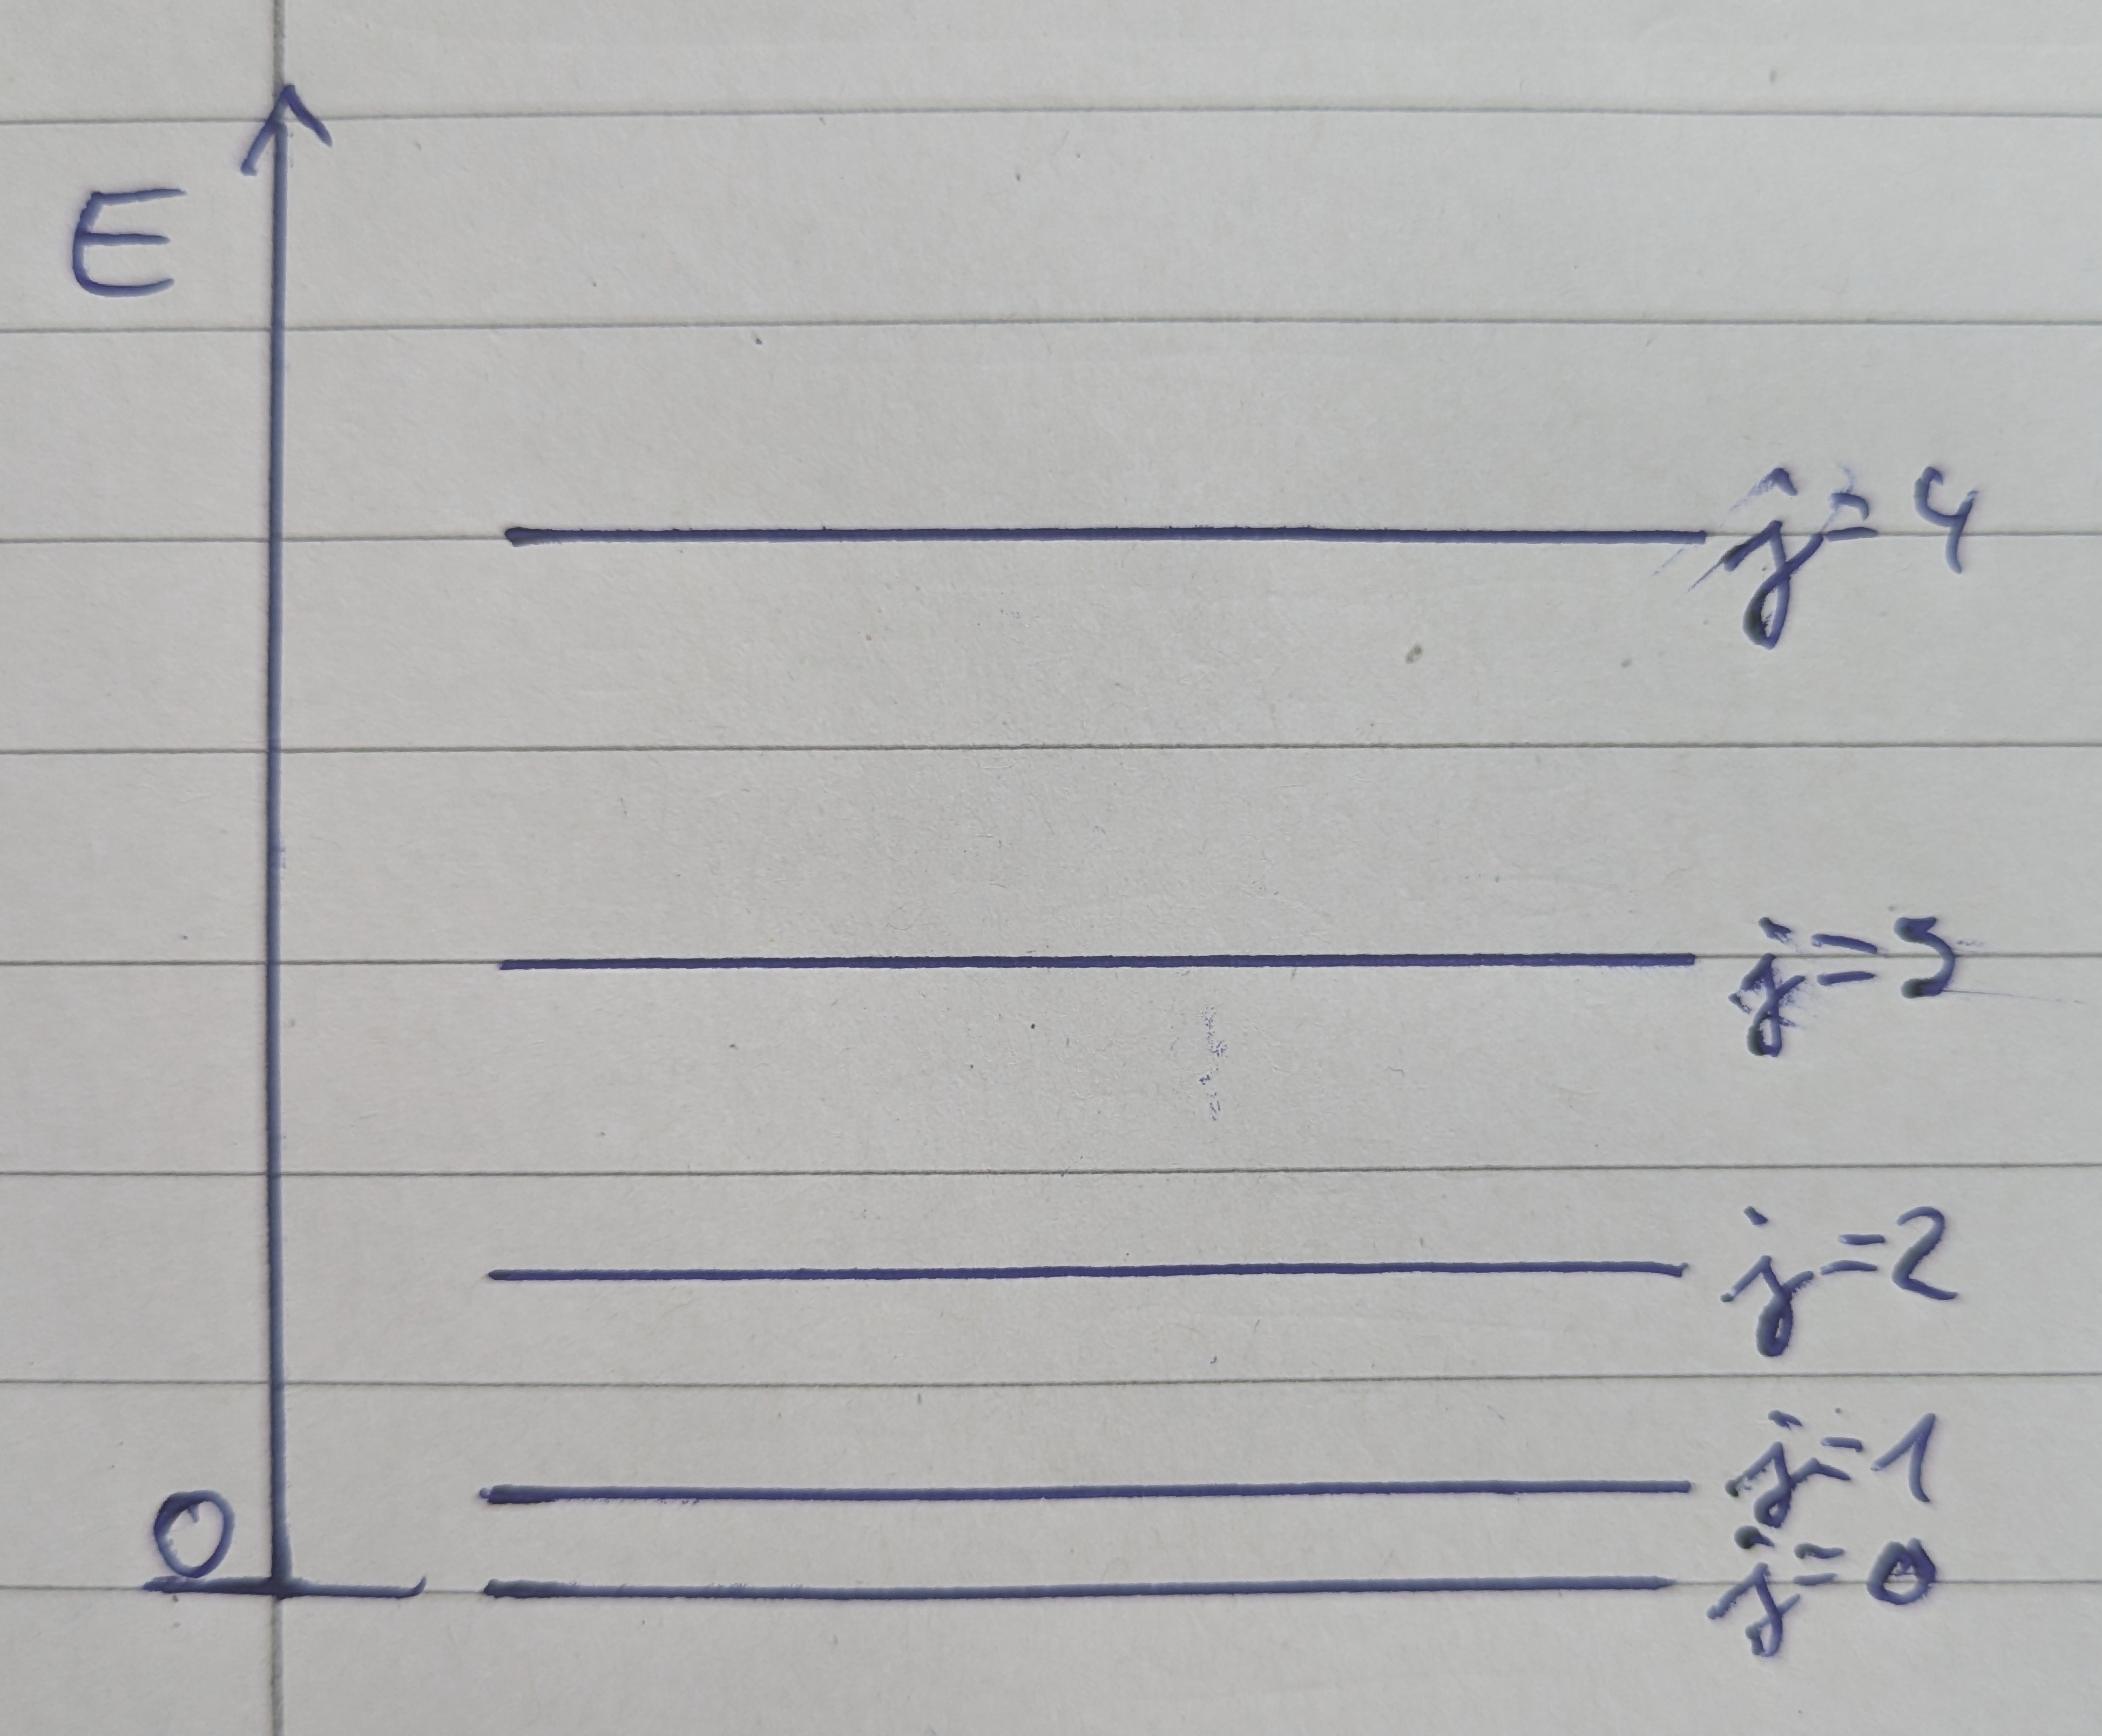 E
j=4
j=3
j=2
j=1
0
j=0